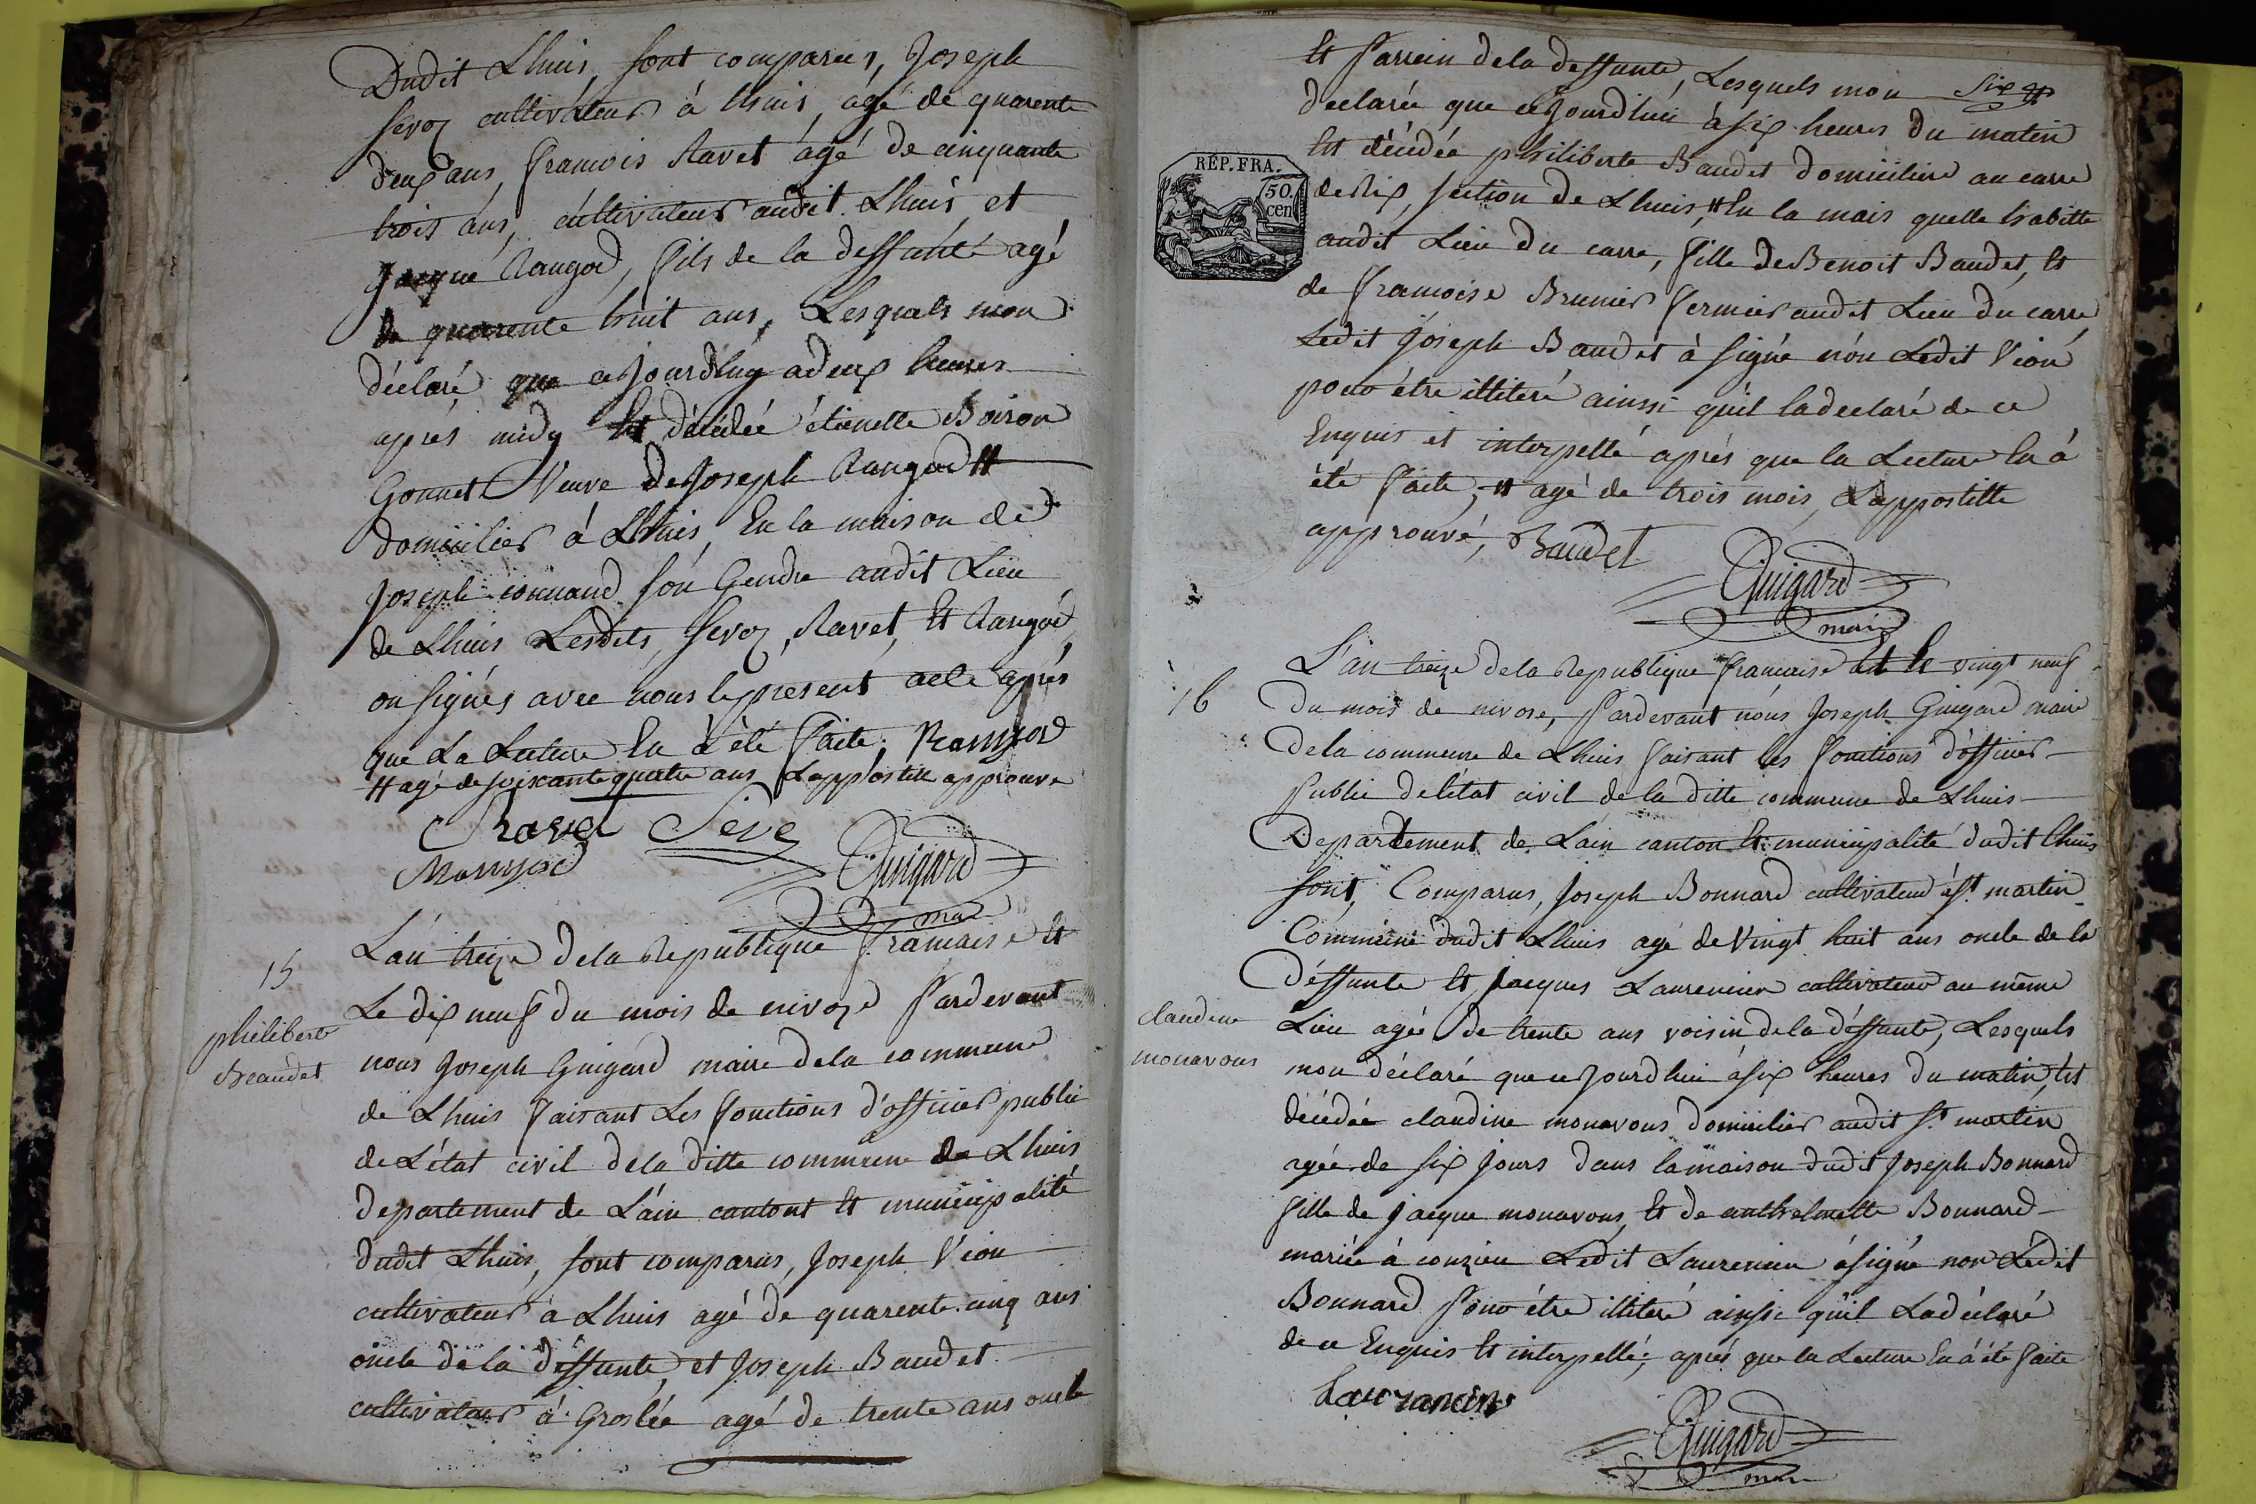 Dudit Lhuis, sont comparus, Joseph
Sevoz cultivateur à Lhuis, agé de quarente
deux ans, francois Ravet agé de cinquante
trois ans, cultivateur audit Lhuis, et
Jacque Rangod, fils de la deffunte agé
de quarente huit ans, Lesquels mon
déclaré que cejourdhuy adeux heures
aprés midy Est décédée étienette Boiron
Gonnet Veuve de Joseph Rangod #
domicilier à Lhuis, En la maison de
Joseph connand son Gendre audit Lieu
de Lhuis Lesdits, Sevoz, Ravet, Et Rangod,
on signés avec nous le present acte aprés
que La Lecture En à été faite; Rangod
# agé de soixante quatre ans Lappostille approuvé
Ravet Seve
Rangod Guigard
maire
15
philiberte
Beaudet
L'an treize dela Republique francaise Et
Le dix neuf du mois de nivoze Pardevant
nous Joseph Guigard maire dela commune
de Lhuis faisant Les fonctions d'officier public
de L'état civil dela ditte commune de Lhuis
departement de L'ain canton Et municipalité
dudit Lhuis, sont comparus, Joseph Vion
cultivateur à Lhuis agé de quarente cinq ans
oncle dela deffunte, et Joseph Baudet
cultivateur à Groslée agé de trente ans oncle
Et Parrein dela deffunte, Lesquels mon
six
declarée que cejourdhui à six heures du matin
Est décédée philiberte Baudet domicilière au carre
de Rix, section de Lhuis, # En la mais quelle habitte
audit Lieu du carre, fille de Benoit Baudet, Et
de francoise Brunier fermier audit Lieu du carre
Ledit Joseph Baudet à signé nón Ledit Vion
pour être illiteré ainssi qúil la declaré de ce
Enquis et interpellé aprés que la Lecture En à
été faite; # agé de trois mois, Lappostille
approuvé, Baudet
Guigard
maire
RÉP. FRA.
50
cen
16
claudine
monavous
L'an treize dela Republique francaise Et le vingt neuf
du mois de nivose, Pardevant nous Joseph Guigard maire
dela commune de Lhuis faisant les fonctions d'officier
Public de l'état civil de la ditte commune de Lhuis
Departement de L'ain canton Et municipalité dudit Lhuis
sont, Comparus, Joseph Bonnard cultivateur à St. martin
Commune dudit Lhuis agé de Vingt huit ans oncle de la
déffunte Et Jacques Laurencin cultivateur au même
Lieu agée de trente ans voisin de la déffunte, Lesquels
mon déclaré que cejourdhui à six heures du matin, Est
décédée claudine monavous domicilier audit St. martin
agée de six Jours dans la maison dudit Joseph Bonnard
fille de Jacque monavous, Et de anthelmette Bonnard
mariée à conzieu Ledit Laurencin à signé non Ledit
Bonnard Pour être illiteré ainssi qúil La déclaré
de ce Enquis Et interpellé; aprés que la Lecture En à été faite
Lauranein
Guigard
maire